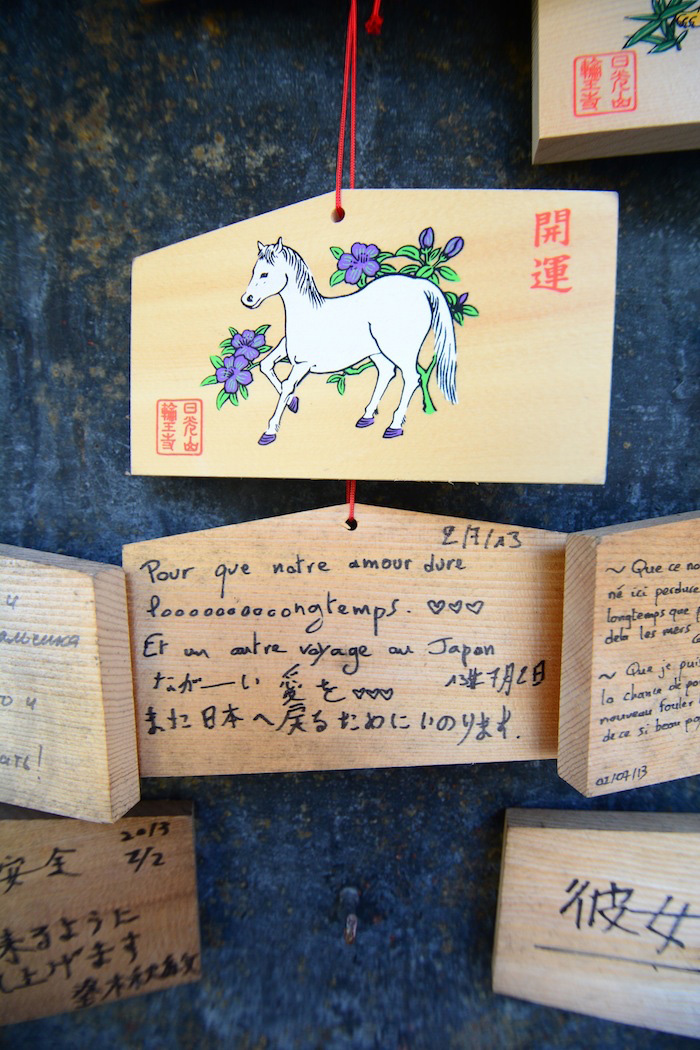 日光山
輪王寺
開運
日光山
輪王寺
2/7/13
Pour que notre amour dure
looooooooongtemps. ♡♡♡
Et un autre voyage au Japon
ながーい愛を♡♡♡ 13年7月2日
また日本へ戻るためにいのります.
~ Que ce no
né ici perdure
longtemps que p
delà les mers
~ Que je puis
la chance de po
nouveau fouler
de ce si beau pay
02/07/13
и
альчика
о и
ать!
2013
安全
来るように
し上げます
彼女